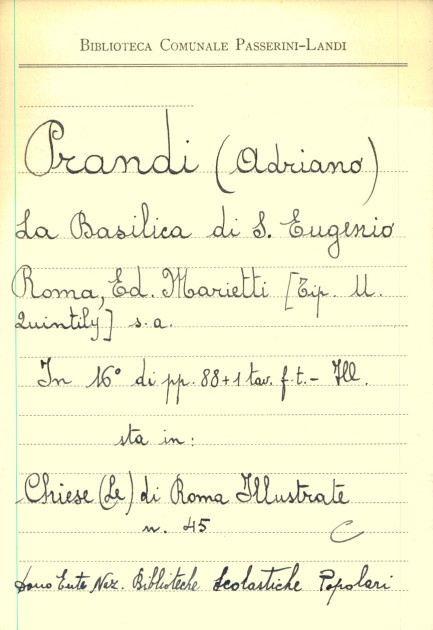 BIBLIOTECA COMUNALE PASSERINI-LANDI
Prandi (Adriano)
La Basilica di S. Eugenio
Roma, Ed. Marietti [Tip. U.
Quintily] s.a.
In 16° di pp. 88+1 tav. f.t. - Ill.
sta in:
Chiese (Le) di Roma Illustrate
n. 45
C
Dono Ente Naz. Biblioteche Scolastiche Popolari